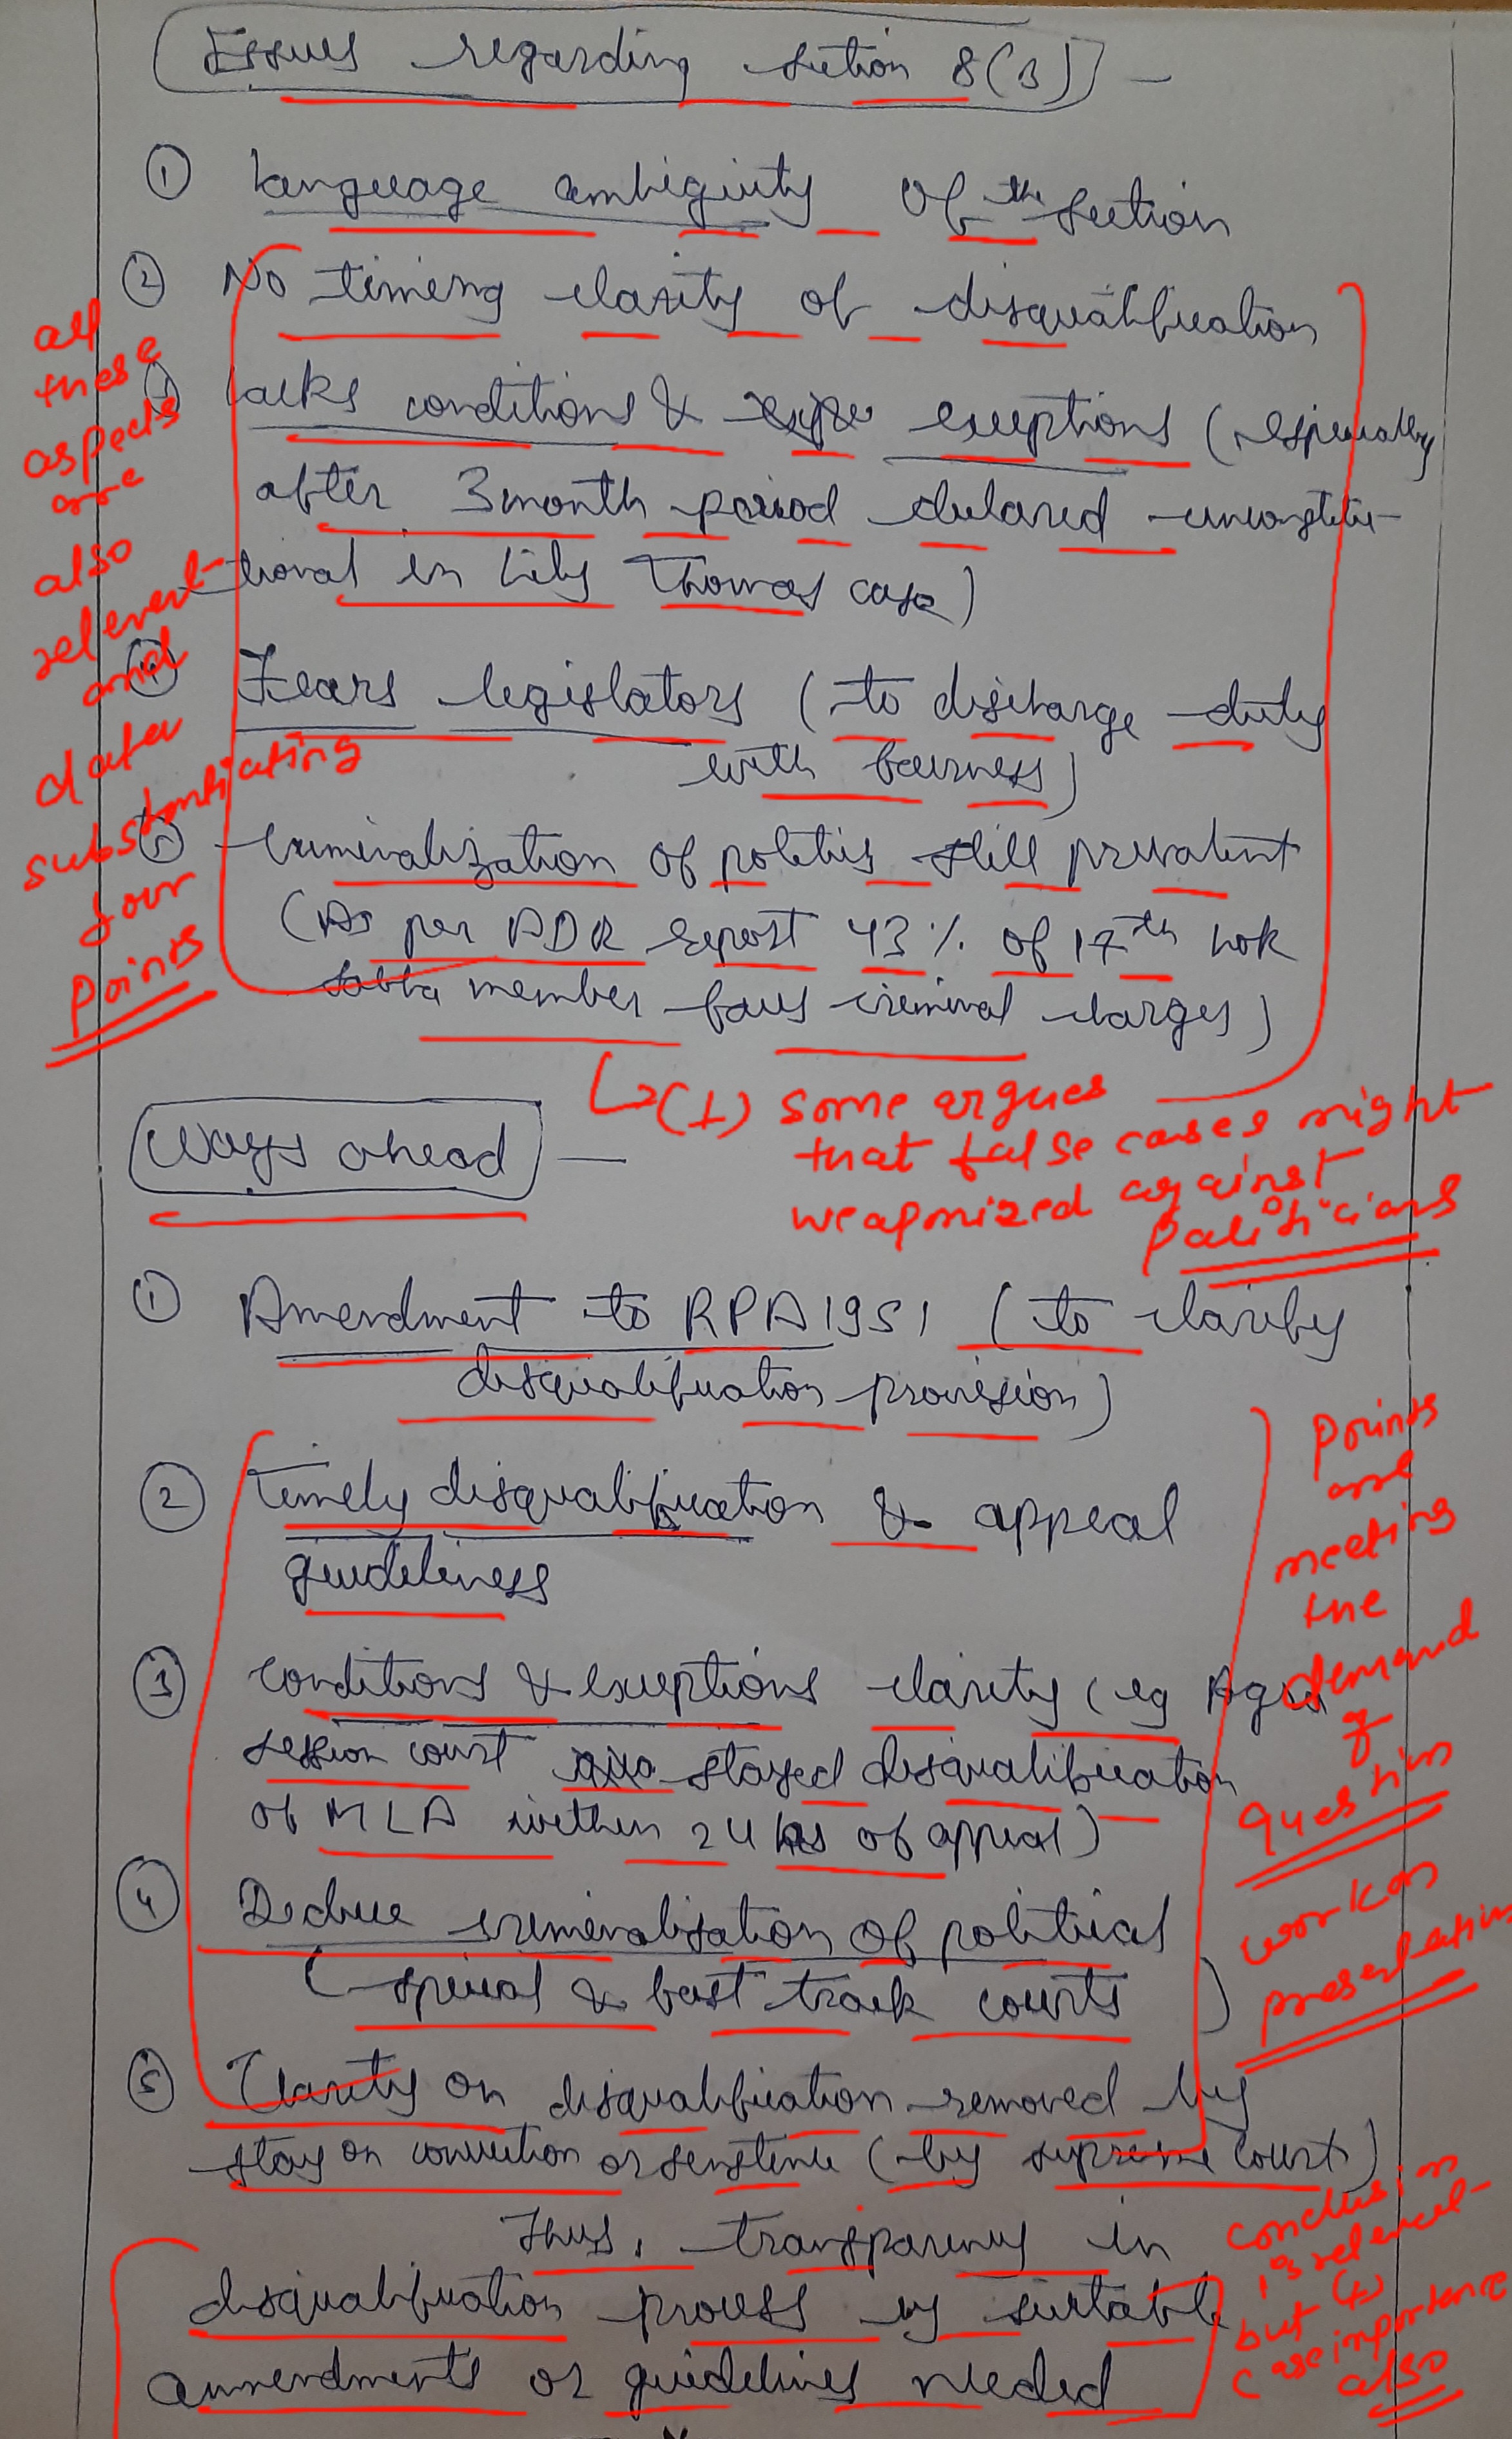 Issues regarding section 8(3) -
① Language ambiguity of the section
② No timing clarity of disqualification
③ Lacks conditions & exceptions (especially
after 3 month period declared unconstitu-
tional in Lily Thomas case)
④ Fears legislators (to discharge duty
with fairness)
⑤ Criminalization of politics still prevalent
(As per ADR report 43% of 17th Lok
Sabha member faces criminal charges)
all
these
aspects
are
also
relevent
and
data
substantiating
your
points
↳(+) some argues
that false cases might
weaponized against
politicians
Ways ahead -
① Amendment to RPA 1951 (to clarify
disqualification provision)
② Timely disqualification & appeal
guideliness
③ Conditions & exceptions clarity (eg Agra
session court stayed disqualification
of MLA within 24 hrs of appeal)
④ Decrease criminalisation of political
(special & fast track courts)
⑤ Clarity on disqualification removed by
stay on conviction or sentence (by supreme court)
Points
are
meeting
the
demand
of
question
work on
presentation
Thus, transparency in
disqualification process by suitable
ammendments or guidelines needed
conclusion
is relevent
but (+)
case importance
also